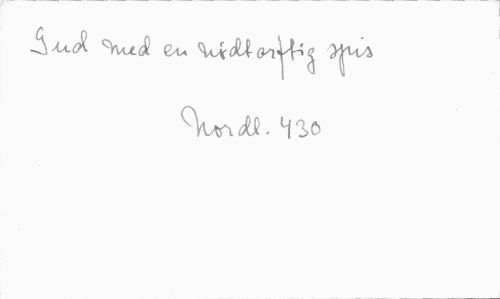 Gud med en nødtørftig spis
Nordl. 430